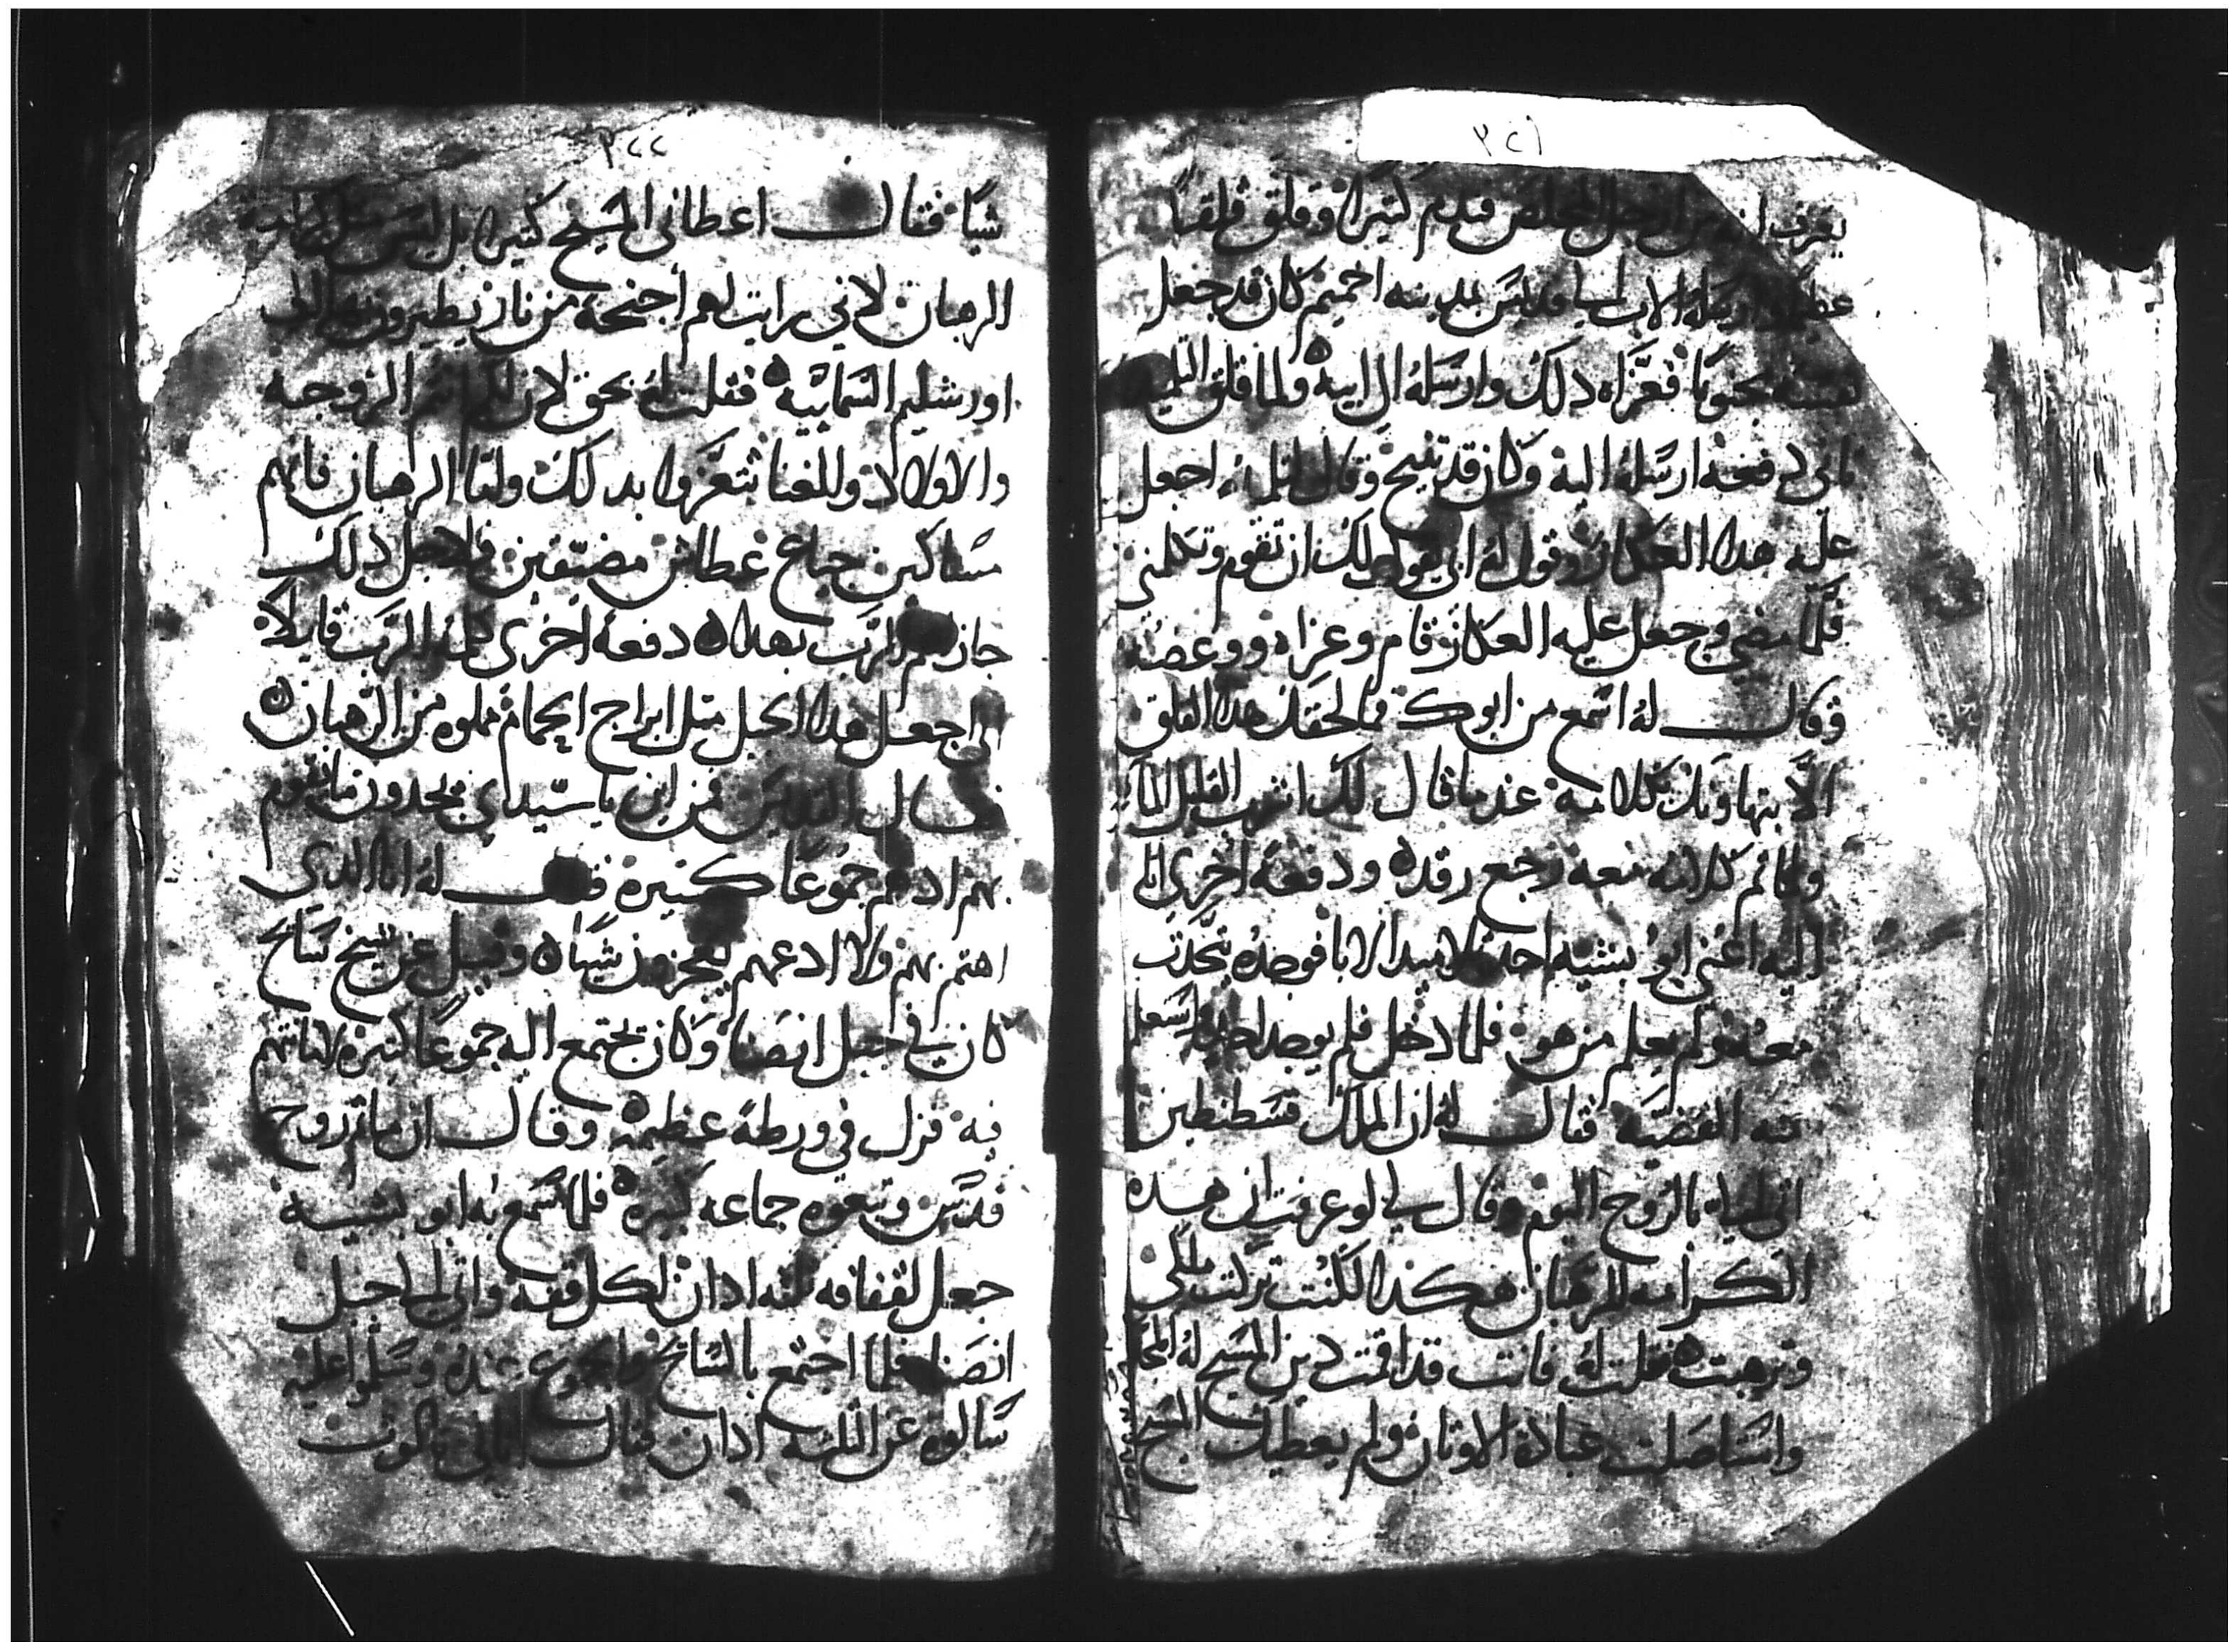 ٣٢١
يعرف انه من اجل المخلص فندم كثيرا وقلق قلقا
عظيما ارسله الاب الى قديس بمدينه اخميم كان قد جعل
نفسه مجنونا فعزاه ذلك وارسله الى ابيه ولما قلق التلميذ
تانى دفعه ارسله اليه وكان قد تنيح وقال لتلميذه اجعل
عليه هدا العكاز وقول له ابى يقول لك ان تقوم وتكلمنى
فلما مضى وجعل عليه العكاز قام وعزاه ووعضه
وقال له اسمع من ابوك فما لحقك هدا القلق
الا بتهاونك بكلامه عندما قال لك اشرب القليل الما
ولما تم كلامه معه رجع رقد ودفعة اخرى اتا
اليه اعنى ابو بشيه احد تلاميد الابا فوجده يتحدت
معه ولم يعلم من هو فلما دخل فلم يوجد احدا واستعلم
منه القضيه فقال له ان الملك قسطنطين
اتى ليا بالروح اليوم وقال لي لو عرفت ان هده
الكرامه للرهبان هكدا لكنت تركت ملكى
وترهبت فقلت له فانت قد اقمت دين المسيح له المجد
واستاصلت عبادة الاوتان ولم يعطيك المسيح
٣٢٢
شيا فقال اعطانى المسيح كثيرا بل ليس مثل كرامة
الرهبان لاني رايت لهم أجنحة من نار يطيرون بها الى
اورشليم السمائيه فقلت له بحق لان لكم انتم الزوجه
والاولاد والغنا تتعزوا بدلك ولما الرهبان فانهم
مساكين جياع عطاش مضيقين فلاجل ذلك
جازهم الرب بهدا دفعة اخرى كلمه الرب قايلا
انى اجعل هدا الجبل متل ابراج الحمام مملوه من الرهبان
فقال القديس من اين يا سيدي يجدون ما يقوم
بهم اد هم جموعا كثيرة فقال له انا الدى
اهتم بهم ولا ادعهم يعجزون شيا وقيل عن شيخ سايح
كان في جبل انصنا وكان يجتمع اليه جموعا كثيره لامانتهم
فيه فنزل في ورطة عظيمه وقال ان ماتم روح
قدس وتبعوه جماعه كثيره فلما سمع به ابو بشيه
جعل لقفافه تلته ادان لكل قفه واتى الى جبل
انصنا فلما اجتمع بالسايح والجموع عنده وسلموا عليه
سالوه عن التلته ادان فقال انا لي تالوت